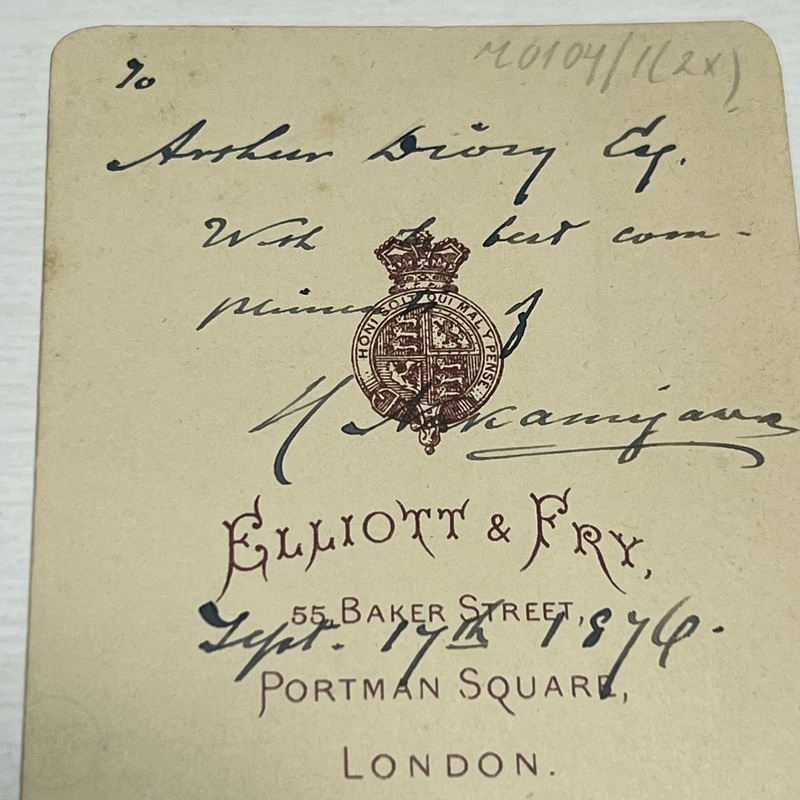 M0104/1(2x)
To
Arthur Diósy Esq.
With the best com-
pliments of
HONI SOIT QUI MAL Y PENSE
H Nakamigawa
ELLIOTT & FRY,
55, BAKER STREET,
Sept. 17th 1876.
PORTMAN SQUARE,
LONDON.